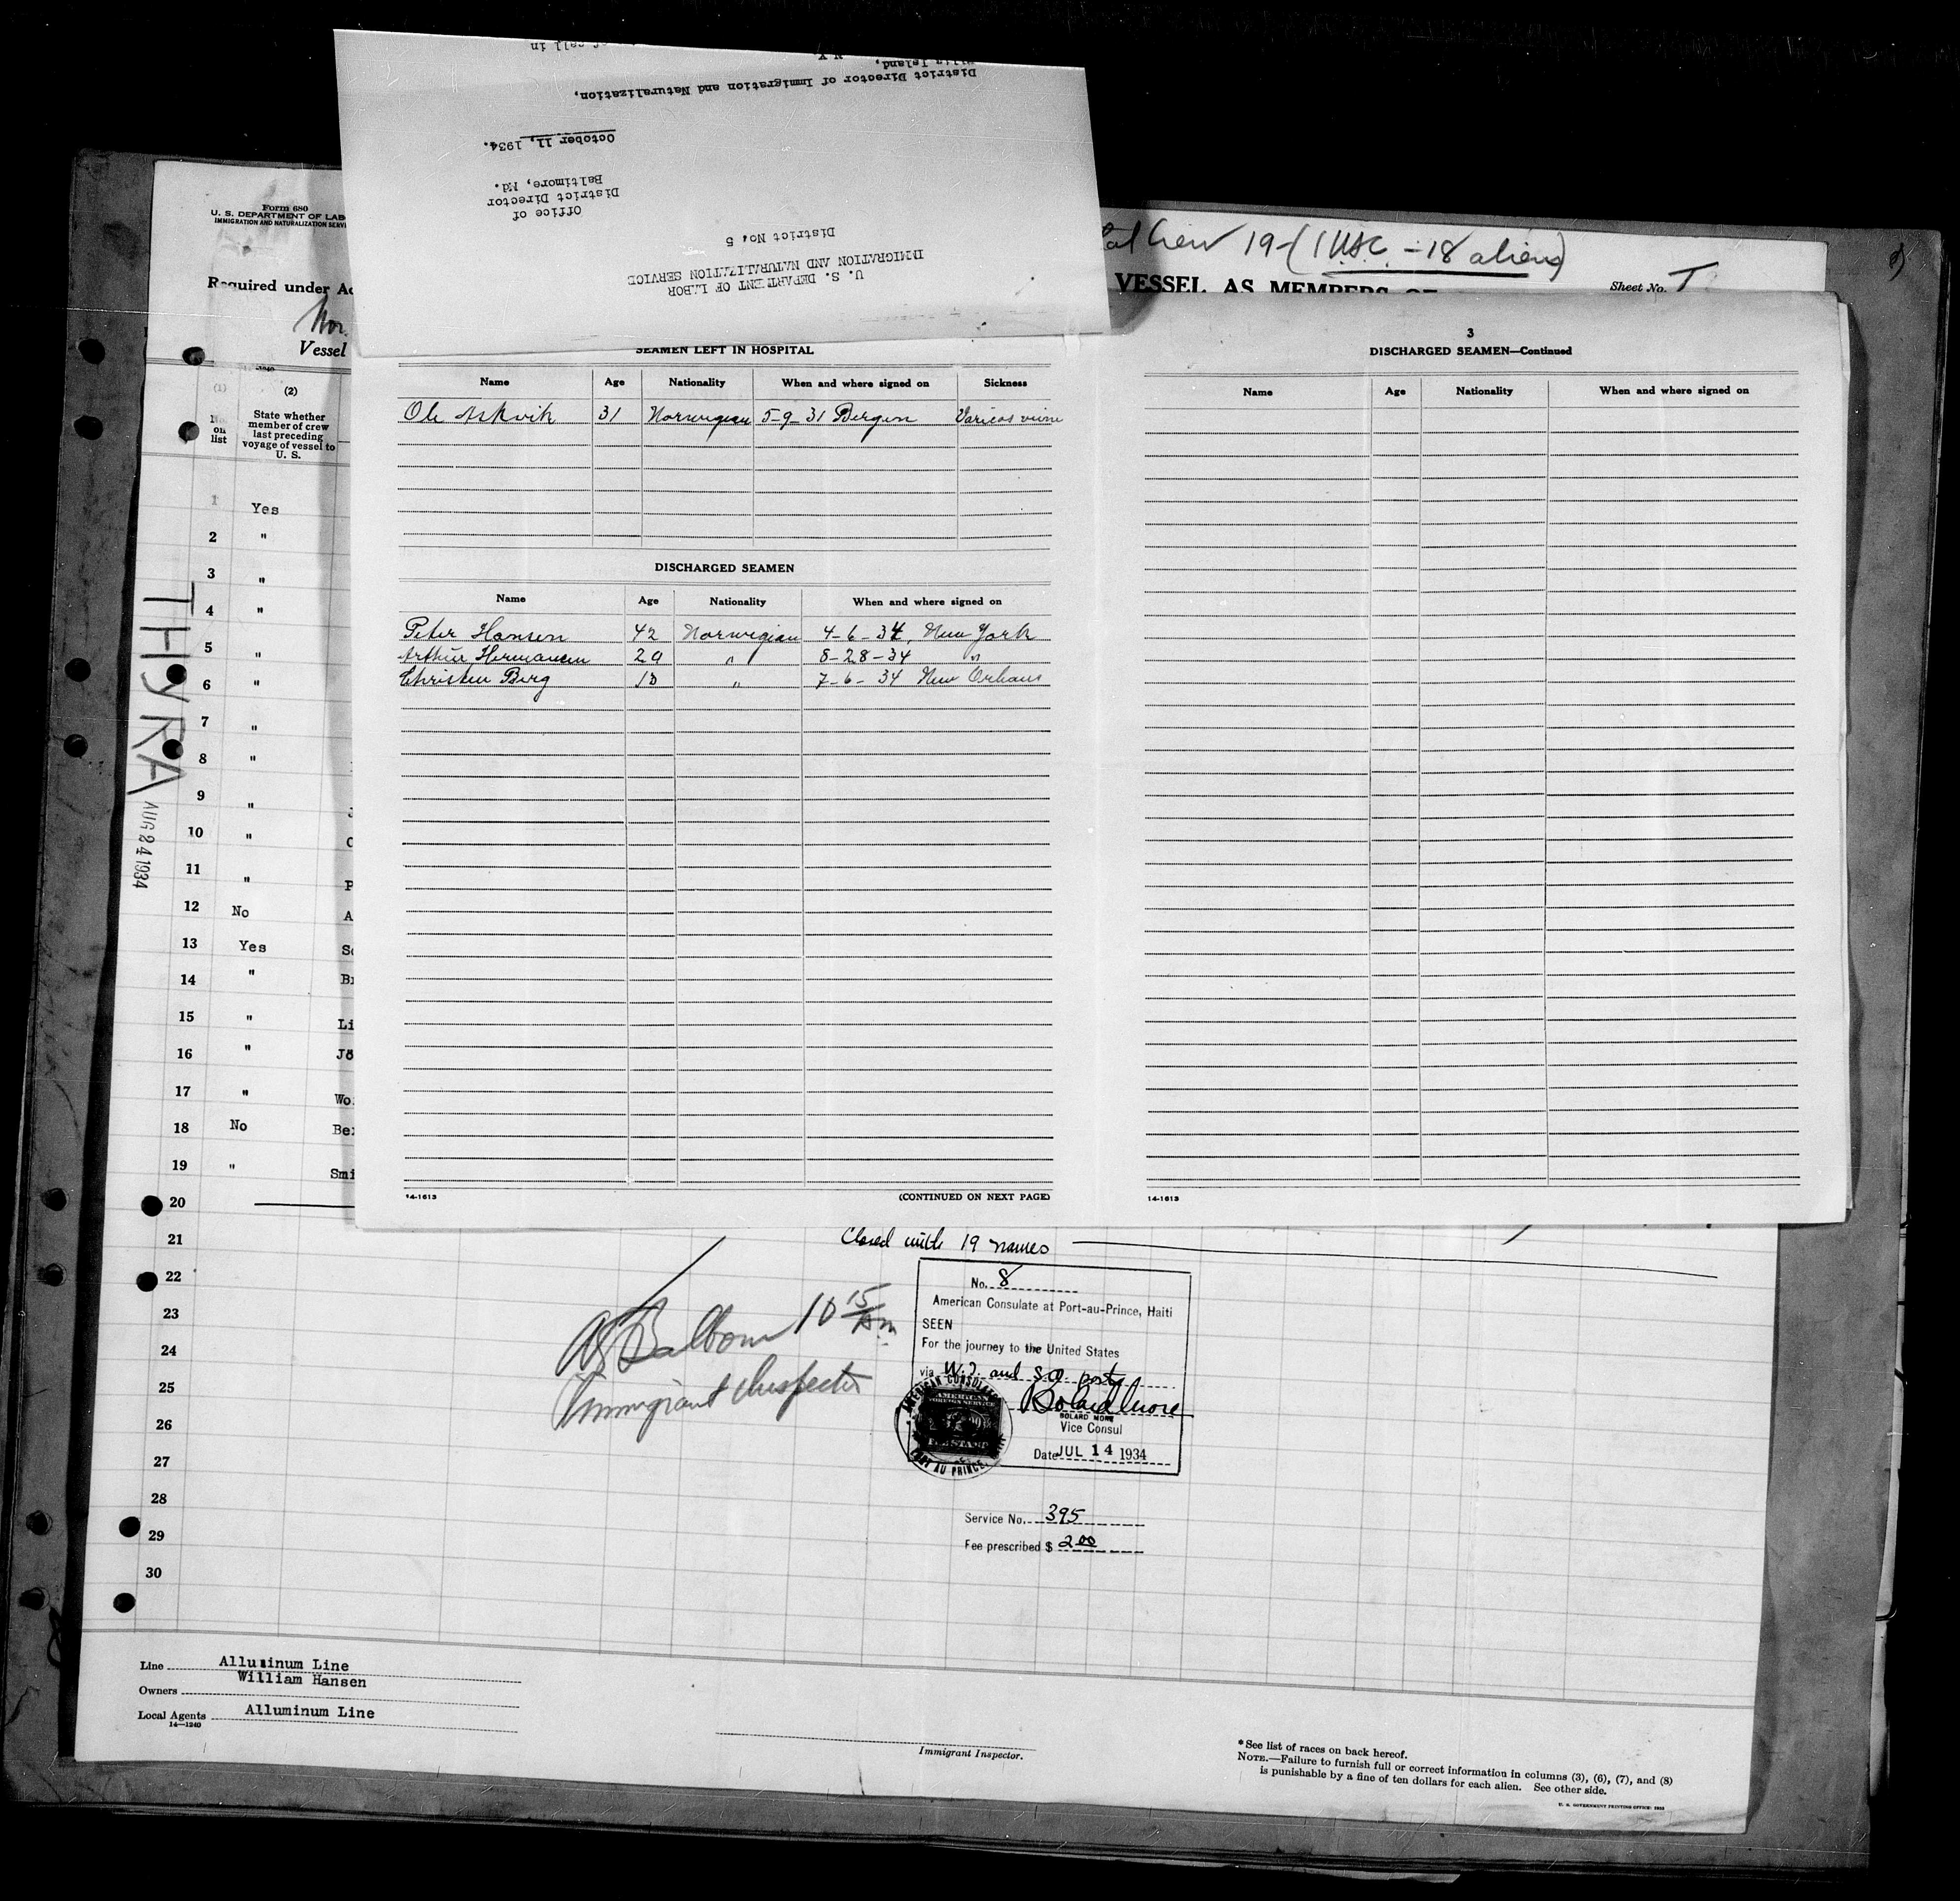 U. S. DEPARTMENT OF LABOR
IMMIGRATION AND NATURALIZATION SERVICE
District No. 5
Office of
District Director
Baltimore, Md.
October 11, 1934.
District Director of Immigration and Naturalization,
Island, N.Y.
call in
Form 680
U. S. DEPARTMENT OF LAB
IMMIGRATION AND NATURALIZATION SERV
Crew 19-(1 USC - 18 aliens)
Required under Ac
VESSEL AS MEMBERS
Sheet No.
Nor.
Vessel
(1)
(2)
No. on list
State whether member of crew last preceding voyage of vessel to U. S.
1 Yes
2 "
3 "
4 "
5 "
6 "
7 "
8 "
9 "
10 "
11 " P
12 No A
13 Yes So
14 " Br
15 " Li
16 " Jo
17 " Wo
18 No Be
19 " Smi
20
21
22
23
24
25
26
27
28
29
30
THYRA
AUG 24 1934
SEAMEN LEFT IN HOSPITAL
Name Age Nationality When and where signed on Sickness
Ole Askvik 31 Norwegian 5-9-31 Bergen Varicos veine
DISCHARGED SEAMEN
Name Age Nationality When and where signed on
Peter Hansen 42 Norwegian 4-6-34, New York
Arthur Hermansen 29 " 8-28-34 "
Christen Berg 18 " 7-6-34 New Orleans
14-1613
(CONTINUED ON NEXT PAGE)
3
DISCHARGED SEAMEN—Continued
Name Age Nationality When and where signed on
14-1613
Closed with 19 names
10 15 Am
Immigrant Inspector
No. 8
American Consulate at Port-au-Prince, Haiti
SEEN
For the journey to the United States
via W.I. and S.A. ports
Bolard More
BOLARD MORE
Vice Consul
Date JUL 14 1934
AMERICAN CONSULATE
PORT AU PRINCE
Service No. 395
Fee prescribed $ 2.00
Line Alluminum Line
Owners William Hansen
Local Agents Alluminum Line
14—1240
Immigrant Inspector.
*See list of races on back hereof.
NOTE.—Failure to furnish full or correct information in columns (3), (6), (7), and (8)
is punishable by a fine of ten dollars for each alien. See other side.
U. S. GOVERNMENT PRINTING OFFICE: 1933